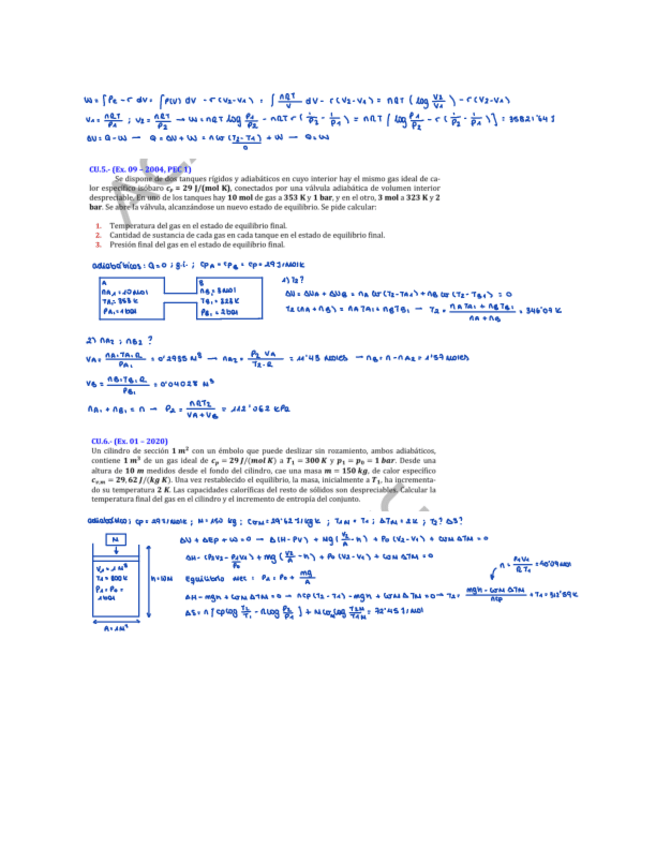 W = ∫Pe - r dV = ∫P(V) dV - r(V2-V1) = ∫ nRT/V dV - r(V2-V1) = nRT (log V2/V1) - r(V2-V1)
V1 = nRT/P1 ; V2 = nRT/P2 → W = nRT log P1/P2 - nRT r (1/P2 - 1/P1) = nRT [log P1/P2 - r (1/P2 - 1/P1)] = 35821'64 J
ΔU = Q - W → Q = ΔU + W = n cv (T2 - T1) + W → Q = W
0
CU.5.- (Ex. 09 – 2004, PEC 1)
Se dispone de dos tanques rígidos y adiabáticos en cuyo interior hay el mismo gas ideal de ca-
lor específico isóbaro cp = 29 J/(mol K), conectados por una válvula adiabática de volumen interior
despreciable. En uno de los tanques hay 10 mol de gas a 353 K y 1 bar, y en el otro, 3 mol a 323 K y 2
bar. Se abre la válvula, alcanzándose un nuevo estado de equilibrio. Se pide calcular:
1. Temperatura del gas en el estado de equilibrio final.
2. Cantidad de sustancia de cada gas en cada tanque en el estado de equilibrio final.
3. Presión final del gas en el estado de equilibrio final.
adiabáticos: Q=0 ; g.i. ; cpA = cpB = cp = 29 J/molK
A
nA1 = 10 mol
TA1 = 353 K
PA1 = 1 bar
B
nB1 = 3 mol
TB1 = 323 K
PB1 = 2 bar
1) T2?
ΔU = ΔUA + ΔUB = nA cv (T2-TA1) + nB cv (T2-TB1) = 0
T2 (nA + nB) = nA TA1 + nB TB1 → T2 = nA TA1 + nB TB1 / nA + nB = 346'09 K
2) nA2 ; nB2 ?
VA = nA1 TA1 R / PA1 = 0'2935 m³ → nA2 = P2 VA / T2 R = 11'43 moles → nB = n - nA2 = 1'57 moles
VB = nB1 TB1 R / PB1 = 0'04028 m³
nA1 + nB1 = n → P2 = nRT2 / VA + VB = 112'062 kPa
CU.6.- (Ex. 01 – 2020)
Un cilindro de sección 1 m² con un émbolo que puede deslizar sin rozamiento, ambos adiabáticos,
contiene 1 m³ de un gas ideal de cp = 29 J/(mol K) a T1 = 300 K y p1 = p0 = 1 bar. Desde una
altura de 10 m medidos desde el fondo del cilindro, cae una masa m = 150 kg, de calor específico
cv,m = 29,62 J/(kg K). Una vez restablecido el equilibrio, la masa, inicialmente a T1, ha incrementa-
do su temperatura 2 K. Las capacidades caloríficas del resto de sólidos son despreciables. Calcular la
temperatura final del gas en el cilindro y el incremento de entropía del conjunto.
adiabático ; cp = 29 J/molK ; m = 150 kg ; cvm = 29'62 J/kgK ; T1M = T1 ; ΔTM = 2K ; T2? ΔS?
M
V1 = 1 m³
T1 = 300 K
P1 = P0 =
1 bar
h = 10m
A = 1 m²
ΔU + ΔEP + W = 0 → Δ(H - PV) + Mg (V2/A - h) + P0 (V2 - V1) + cvm ΔTM = 0
ΔH - (P2V2 - P1V1) + mg (V2/A - h) + P0 (V2 - V1) + cvm ΔTM = 0
Equilibrio mec : P2 = P0 + mg/A
n = P1V1 / R T1 = 40'09 mol
ΔH - mgh + cvm ΔTM = 0 → ncp (T2 - T1) - mgh + cvm ΔTM = 0 → T2 = mgh - cvm ΔTM / ncp + T1 = 312'59 K
ΔS = n [cp log T2/T1 - R log P2/P1] + M cvm log T2M/T1M = 72'45 J/mol